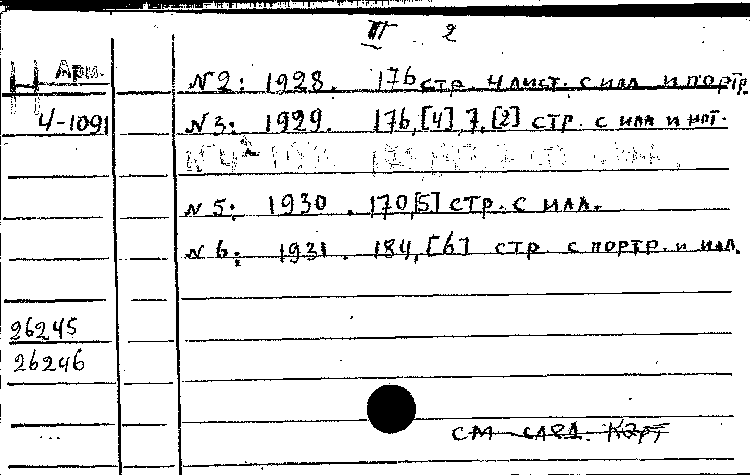 III 2
Н Арм.
4-1091
N2: 1928. 176 стр. 4 лист. с илл. и портр.
N3: 1929. 176, [4], 7, [2] стр. с илл и нот.
N5: 1930. 170, [5] стр. с илл.
N6: 1931. 184, [6] стр с портр. и илл.
26245
26246
см след. карт